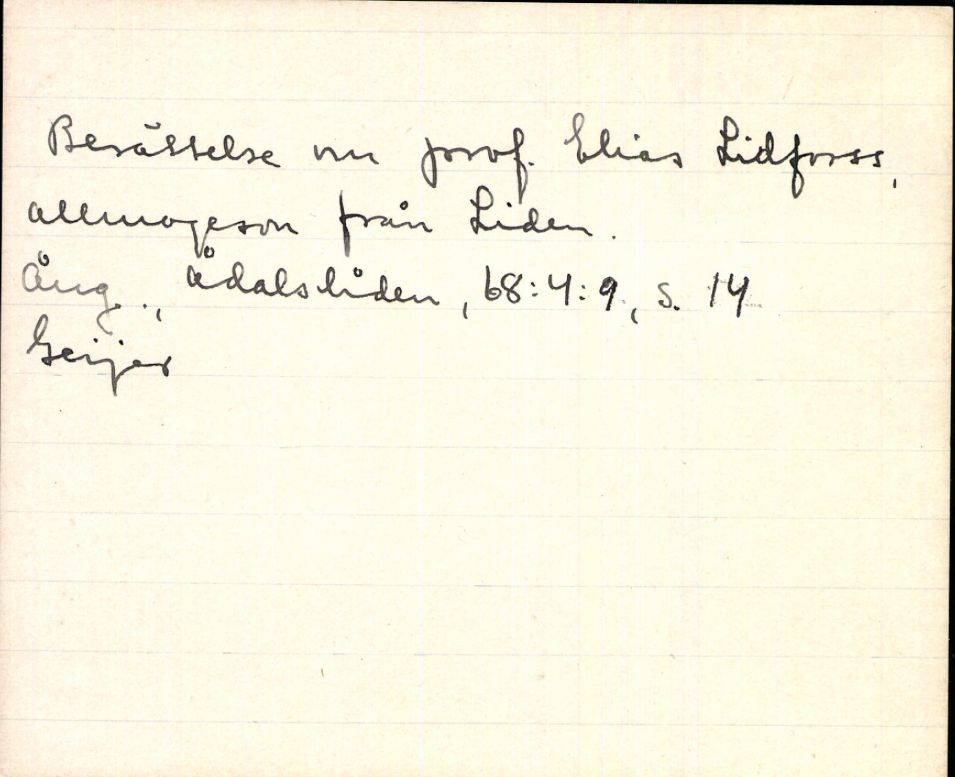 Berättelse om prof. Elias Lidforss,
allmogeson från Liden.
Ång., Ådalsliden, 68:4:9, s. 14
Geijer